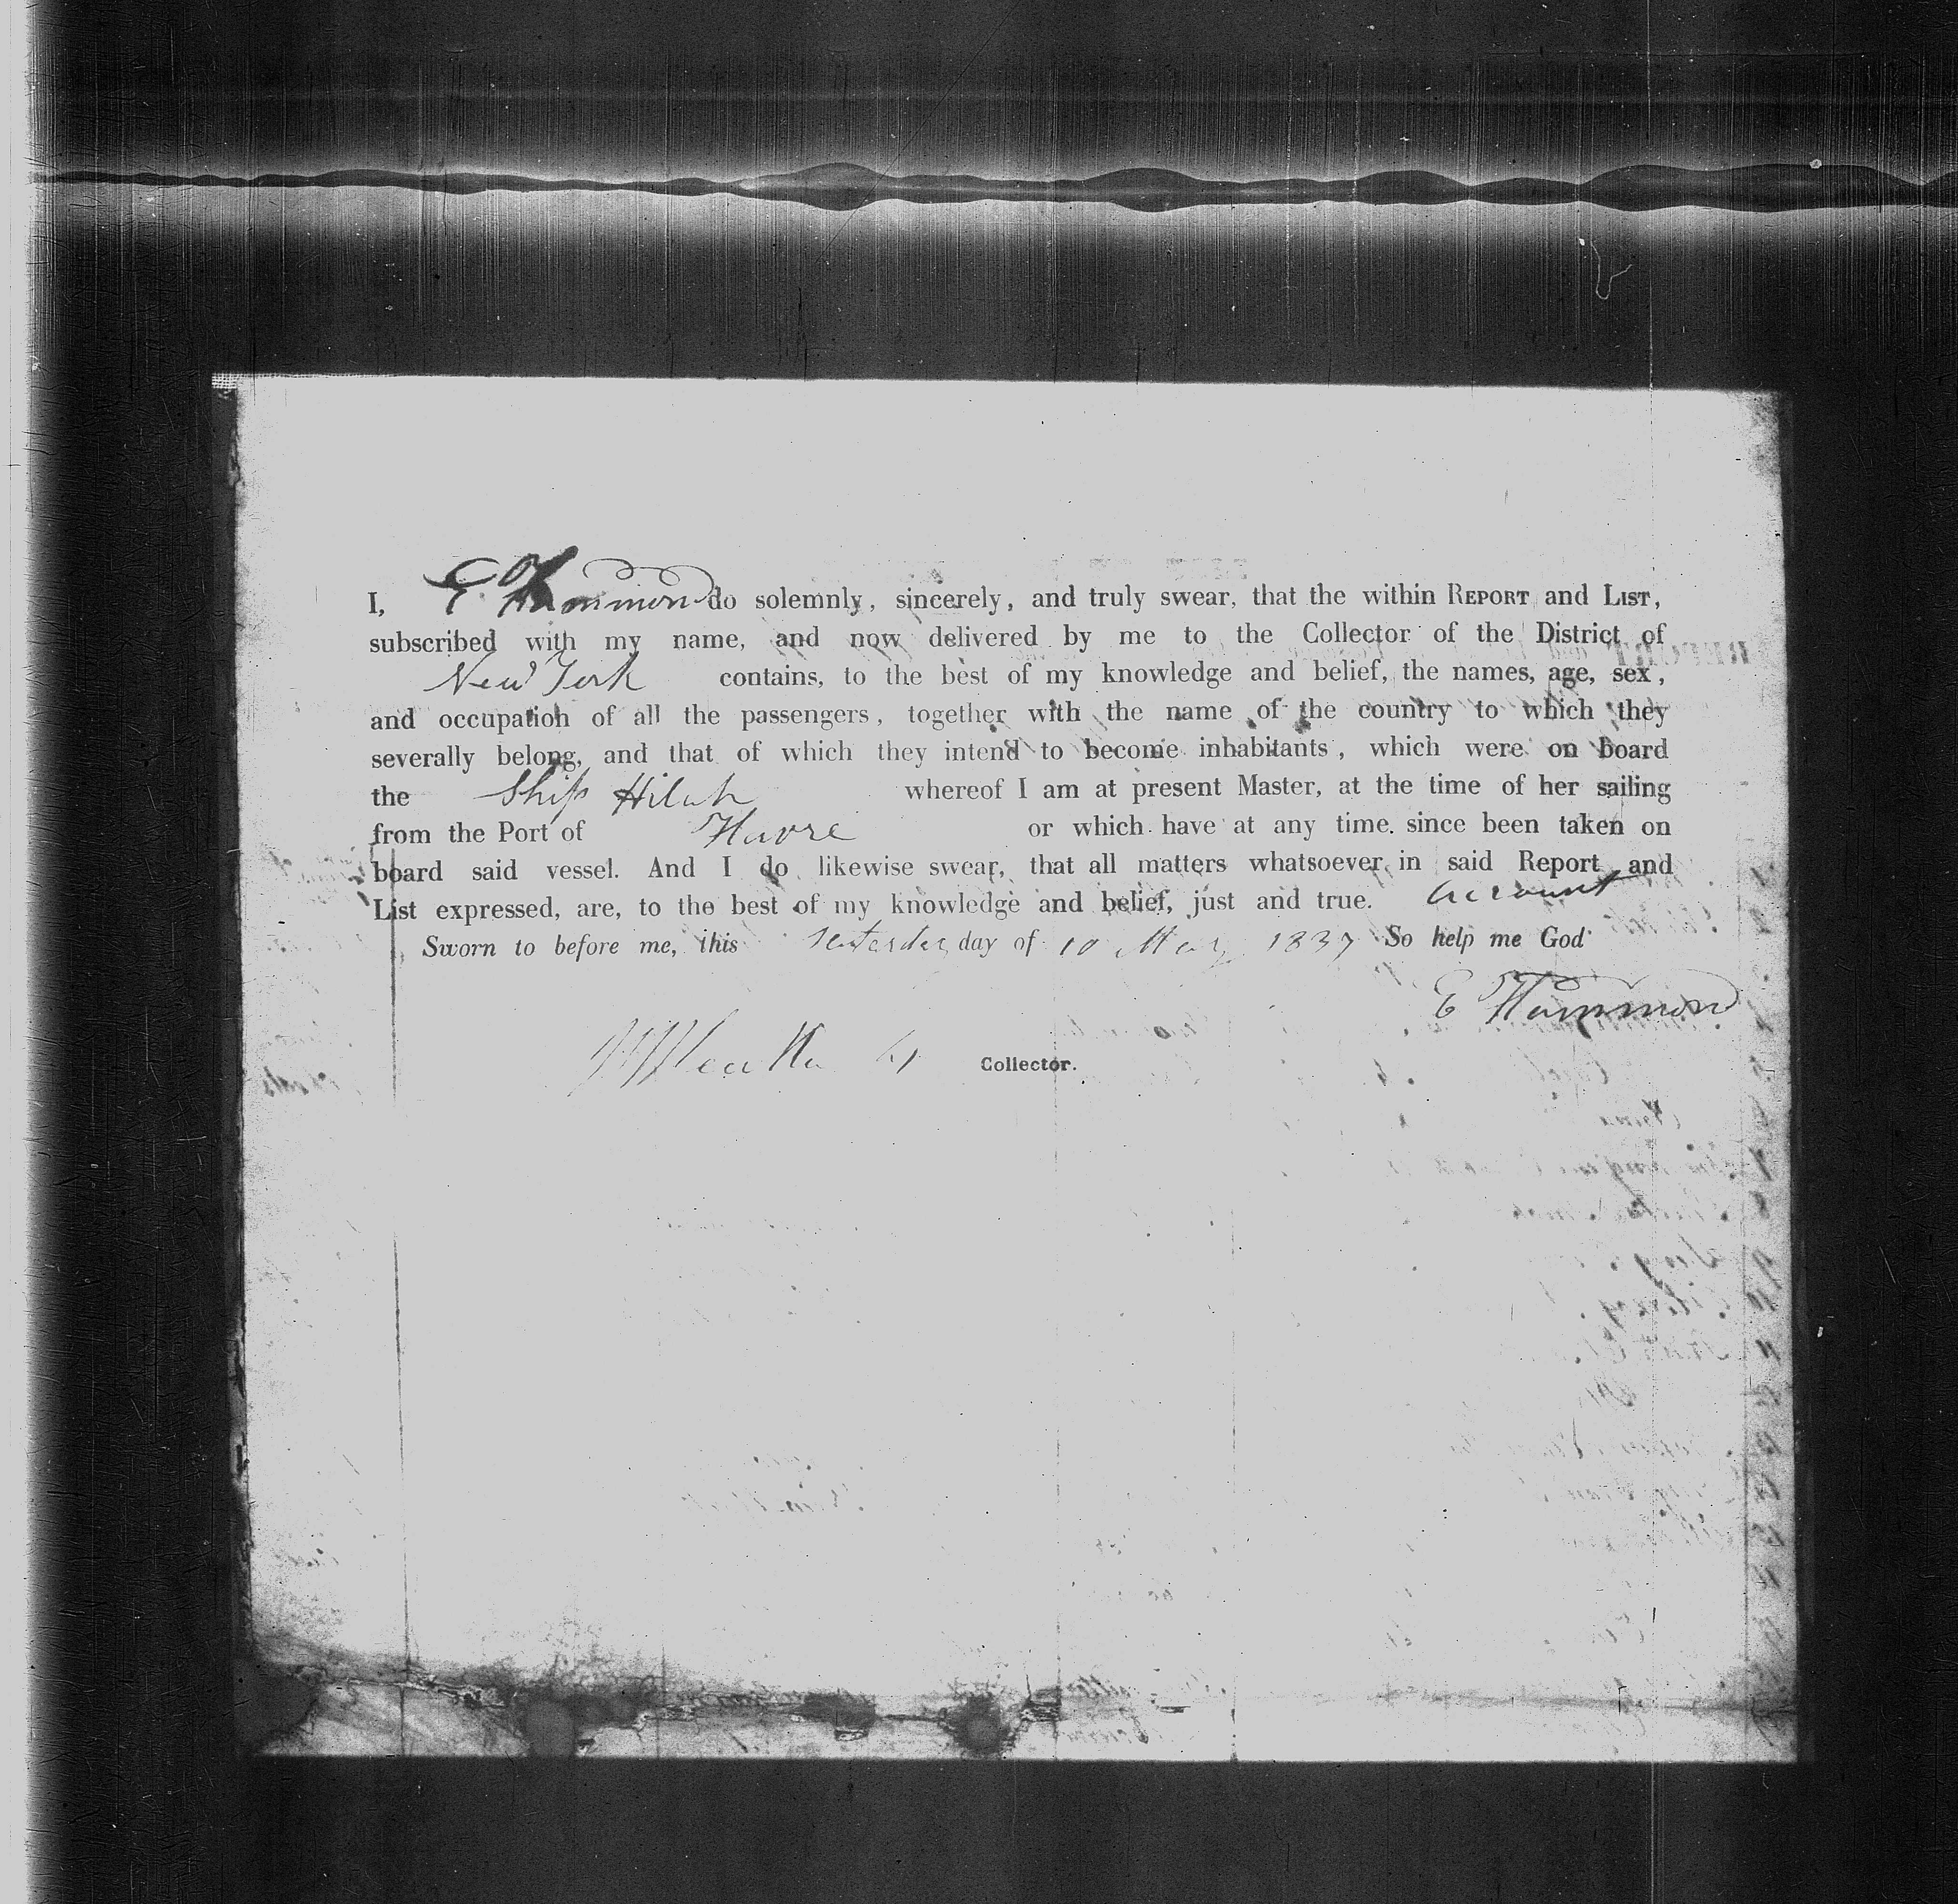 I, E. Hammond do solemnly, sincerely, and truly swear, that the within REPORT and LIST,
subscribed with my name, and now delivered by me to the Collector of the District of
New York contains, to the best of my knowledge and belief, the names, age, sex,
and occupation of all the passengers, together with the name of the country to which they
severally belong, and that of which they intend to become inhabitants, which were on board
the Ship Hilah whereof I am at present Master, at the time of her sailing
from the Port of Havre or which have at any time. since been taken on
board said vessel. And I do likewise swear, that all matters whatsoever in said Report and
List expressed, are, to the best of my knowledge and belief, just and true. account
Sworn to before me, this day of 10 May 1837 So help me God
E Hammond
Collector.